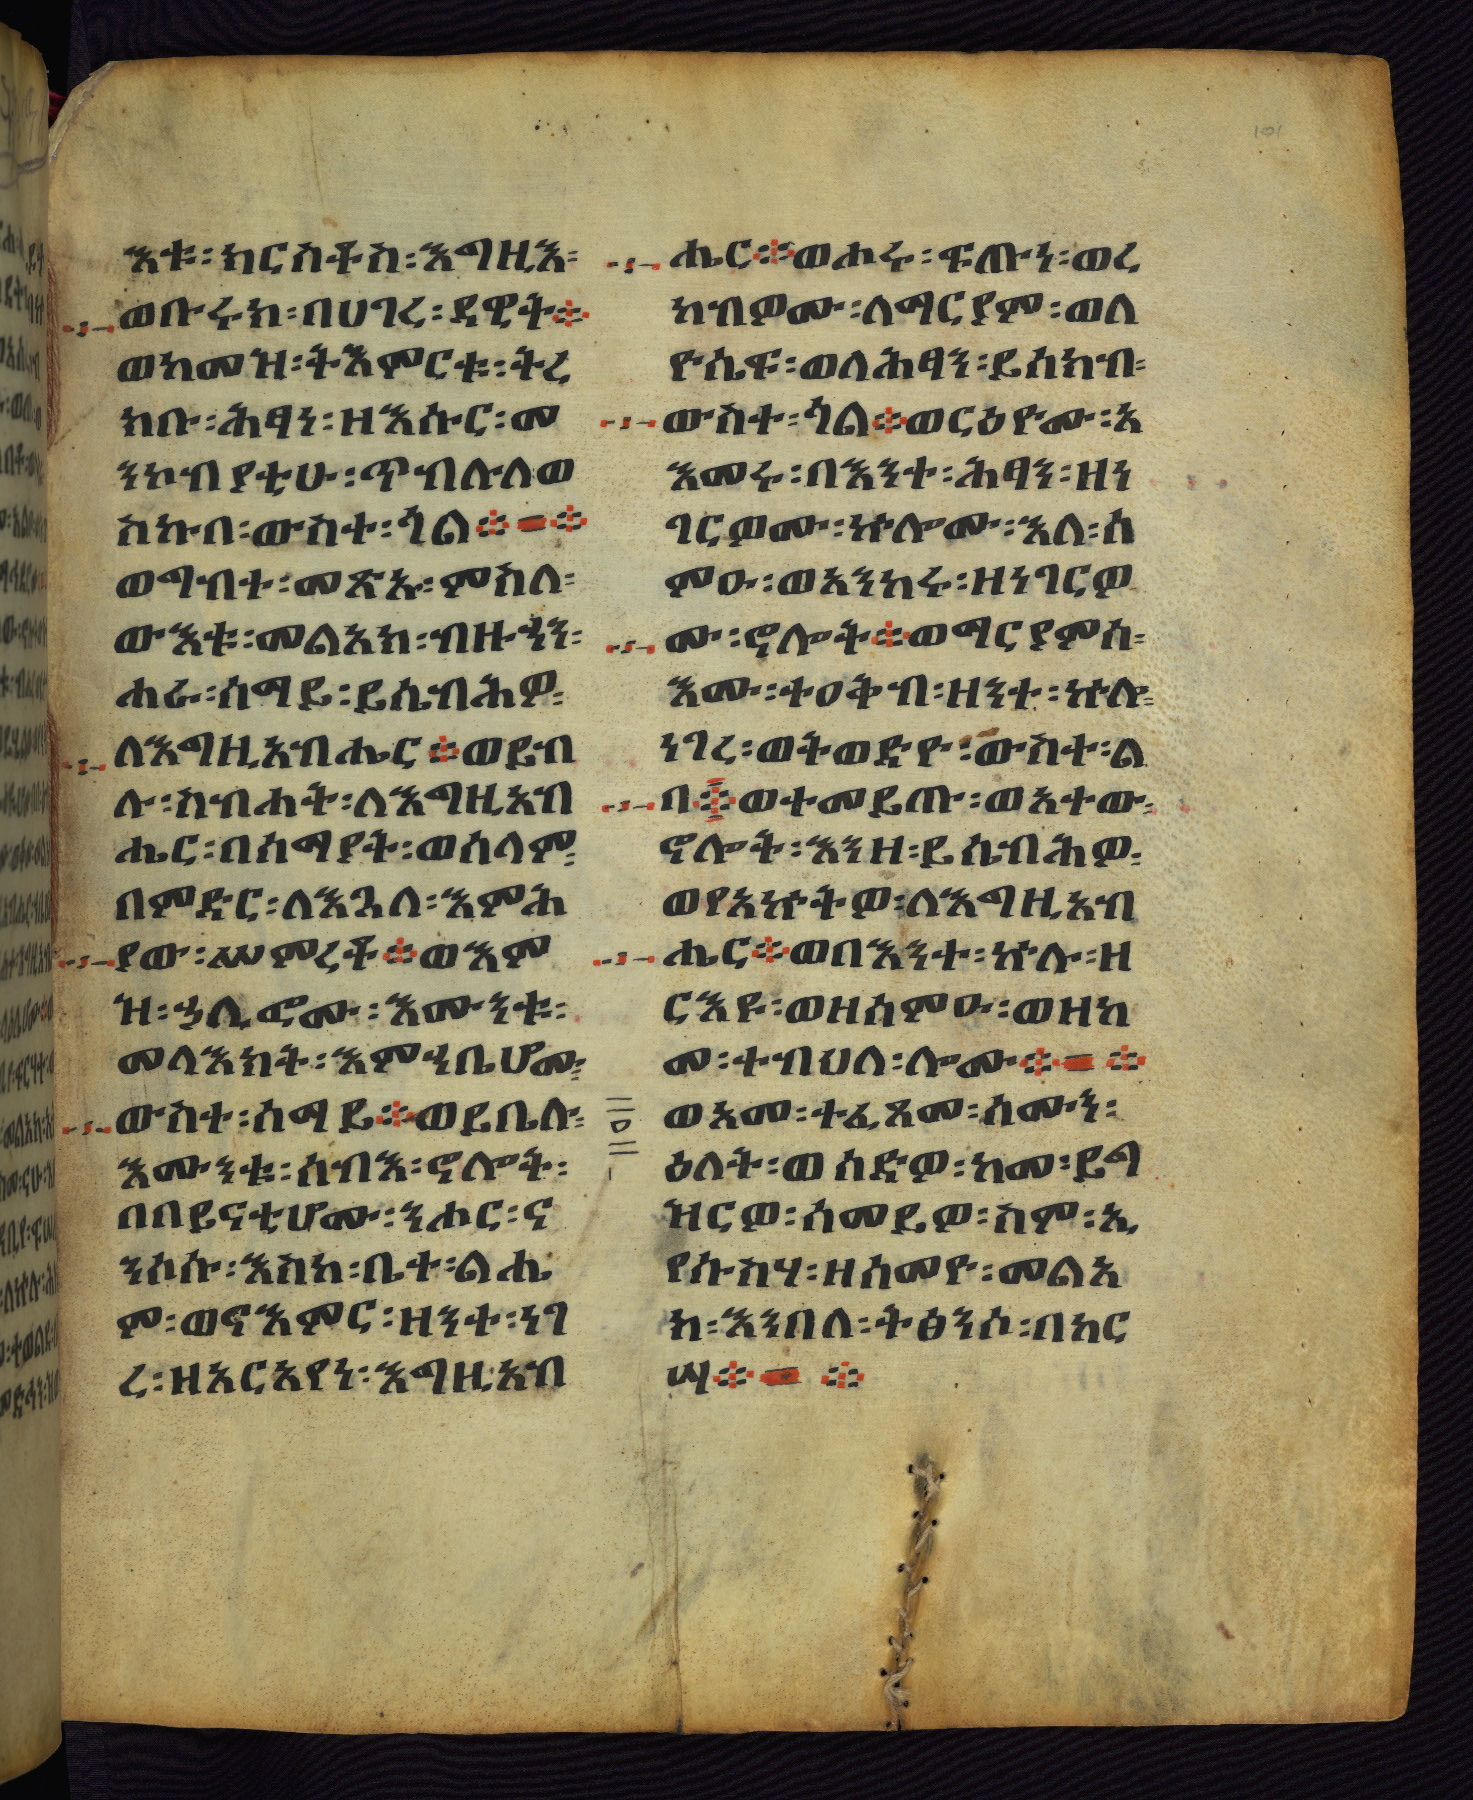 እቱ፡ክርስቶስ፡እግዚእ፡
ወቡሩክ፡በሀገረ፡ዳዊት፨
ወከመዝ፡ትእምርቱ፡ትረ
ክቡ፡ሕፃነ፡ዘእሱር፡መ
ንኮብያቲሁ፡ጥብሉለወ
ስኩበ፡ውስተ፡ጎል፨ – ፨
ወግብተ፡መጽኡ፡ምስለ፡
ውእቱ፡መልአክ፡ብዙኃን፡
ሐራ፡ሰማይ፡ይሴብሕዎ፡
ለእግዚአብሔር፨ወይብ
ሉ፡ስብሐት፡ለእግዚአብ
ሔር፡በሰማያት፡ወሰላም፡
በምድር፡ለእጓለ፡እምሕ
ያው፡ሠምረቶ፨ወእም
ዝ፡ኃሊፎሙ፡እሙንቱ፡
መላእክት፡እምኀቤሆሙ፡
ውስተ፡ሰማይ፨ወይቤሉ፡
እሙንቱ፡ሰብእ፡ኖሎት፡
በበይናቲሆሙ፡ንሑር፡ና
ንሶሱ፡እስከ፡ቤተ፡ልሔ
ም፡ወናእምር፡ዘንተ፡ነገ
ረ፡ዘአርአየነ፡እግዚአብ
ሔር፨ወሐሩ፡ፍጡነ፡ወረ
ከብዎሙ፡ለማርያም፡ወለ
ዮሴፍ፡ወለሕፃን፡ይሰክብ፡
ውስተ፡ጎል፨ወርዕዮሙ፡አ
እመሩ፡በእንተ፡ሕፃን፡ዘነ
ገርዎሙ፡ኵሎሙ፡እለ፡ሰ
ምዑ፡ወአንከሩ፡ዘነገርዎ
ሙ፡ኖሎት፨ወማርያምሰ፡
እሙ፡ተዐቅብ፡ዘንተ፡ኵሎ፡
ነገረ፡ወትወድዮ፡ውስተ፡ል
ባ፨ወተመይጡ፡ወአተው፡
ኖሎት፡እንዘ፡ይሴብሕዎ፡
ወየአኵትዎ፡ለእግዚአብ
ሔር፨ወበእንተ፡ኵሉ፡ዘ
ርእዩ፡ወዘሰምዑ፡ወዘከ
መ፡ተብህለ፡ሎሙ፨ – ፨
ወአመ፡ተፈጸመ፡ሰሙን፡
ዕለት፡ወሰድዎ፡ከመ፡ይግ
ዝርዎ፡ሰመይዎ፡ስሞ፡ኢ
የሱስሃ፡ዘሰመዮ፡መልአ
ክ፡እንበለ፡ትፅንሶ፡በከር
ሣ፨ – ፨
101